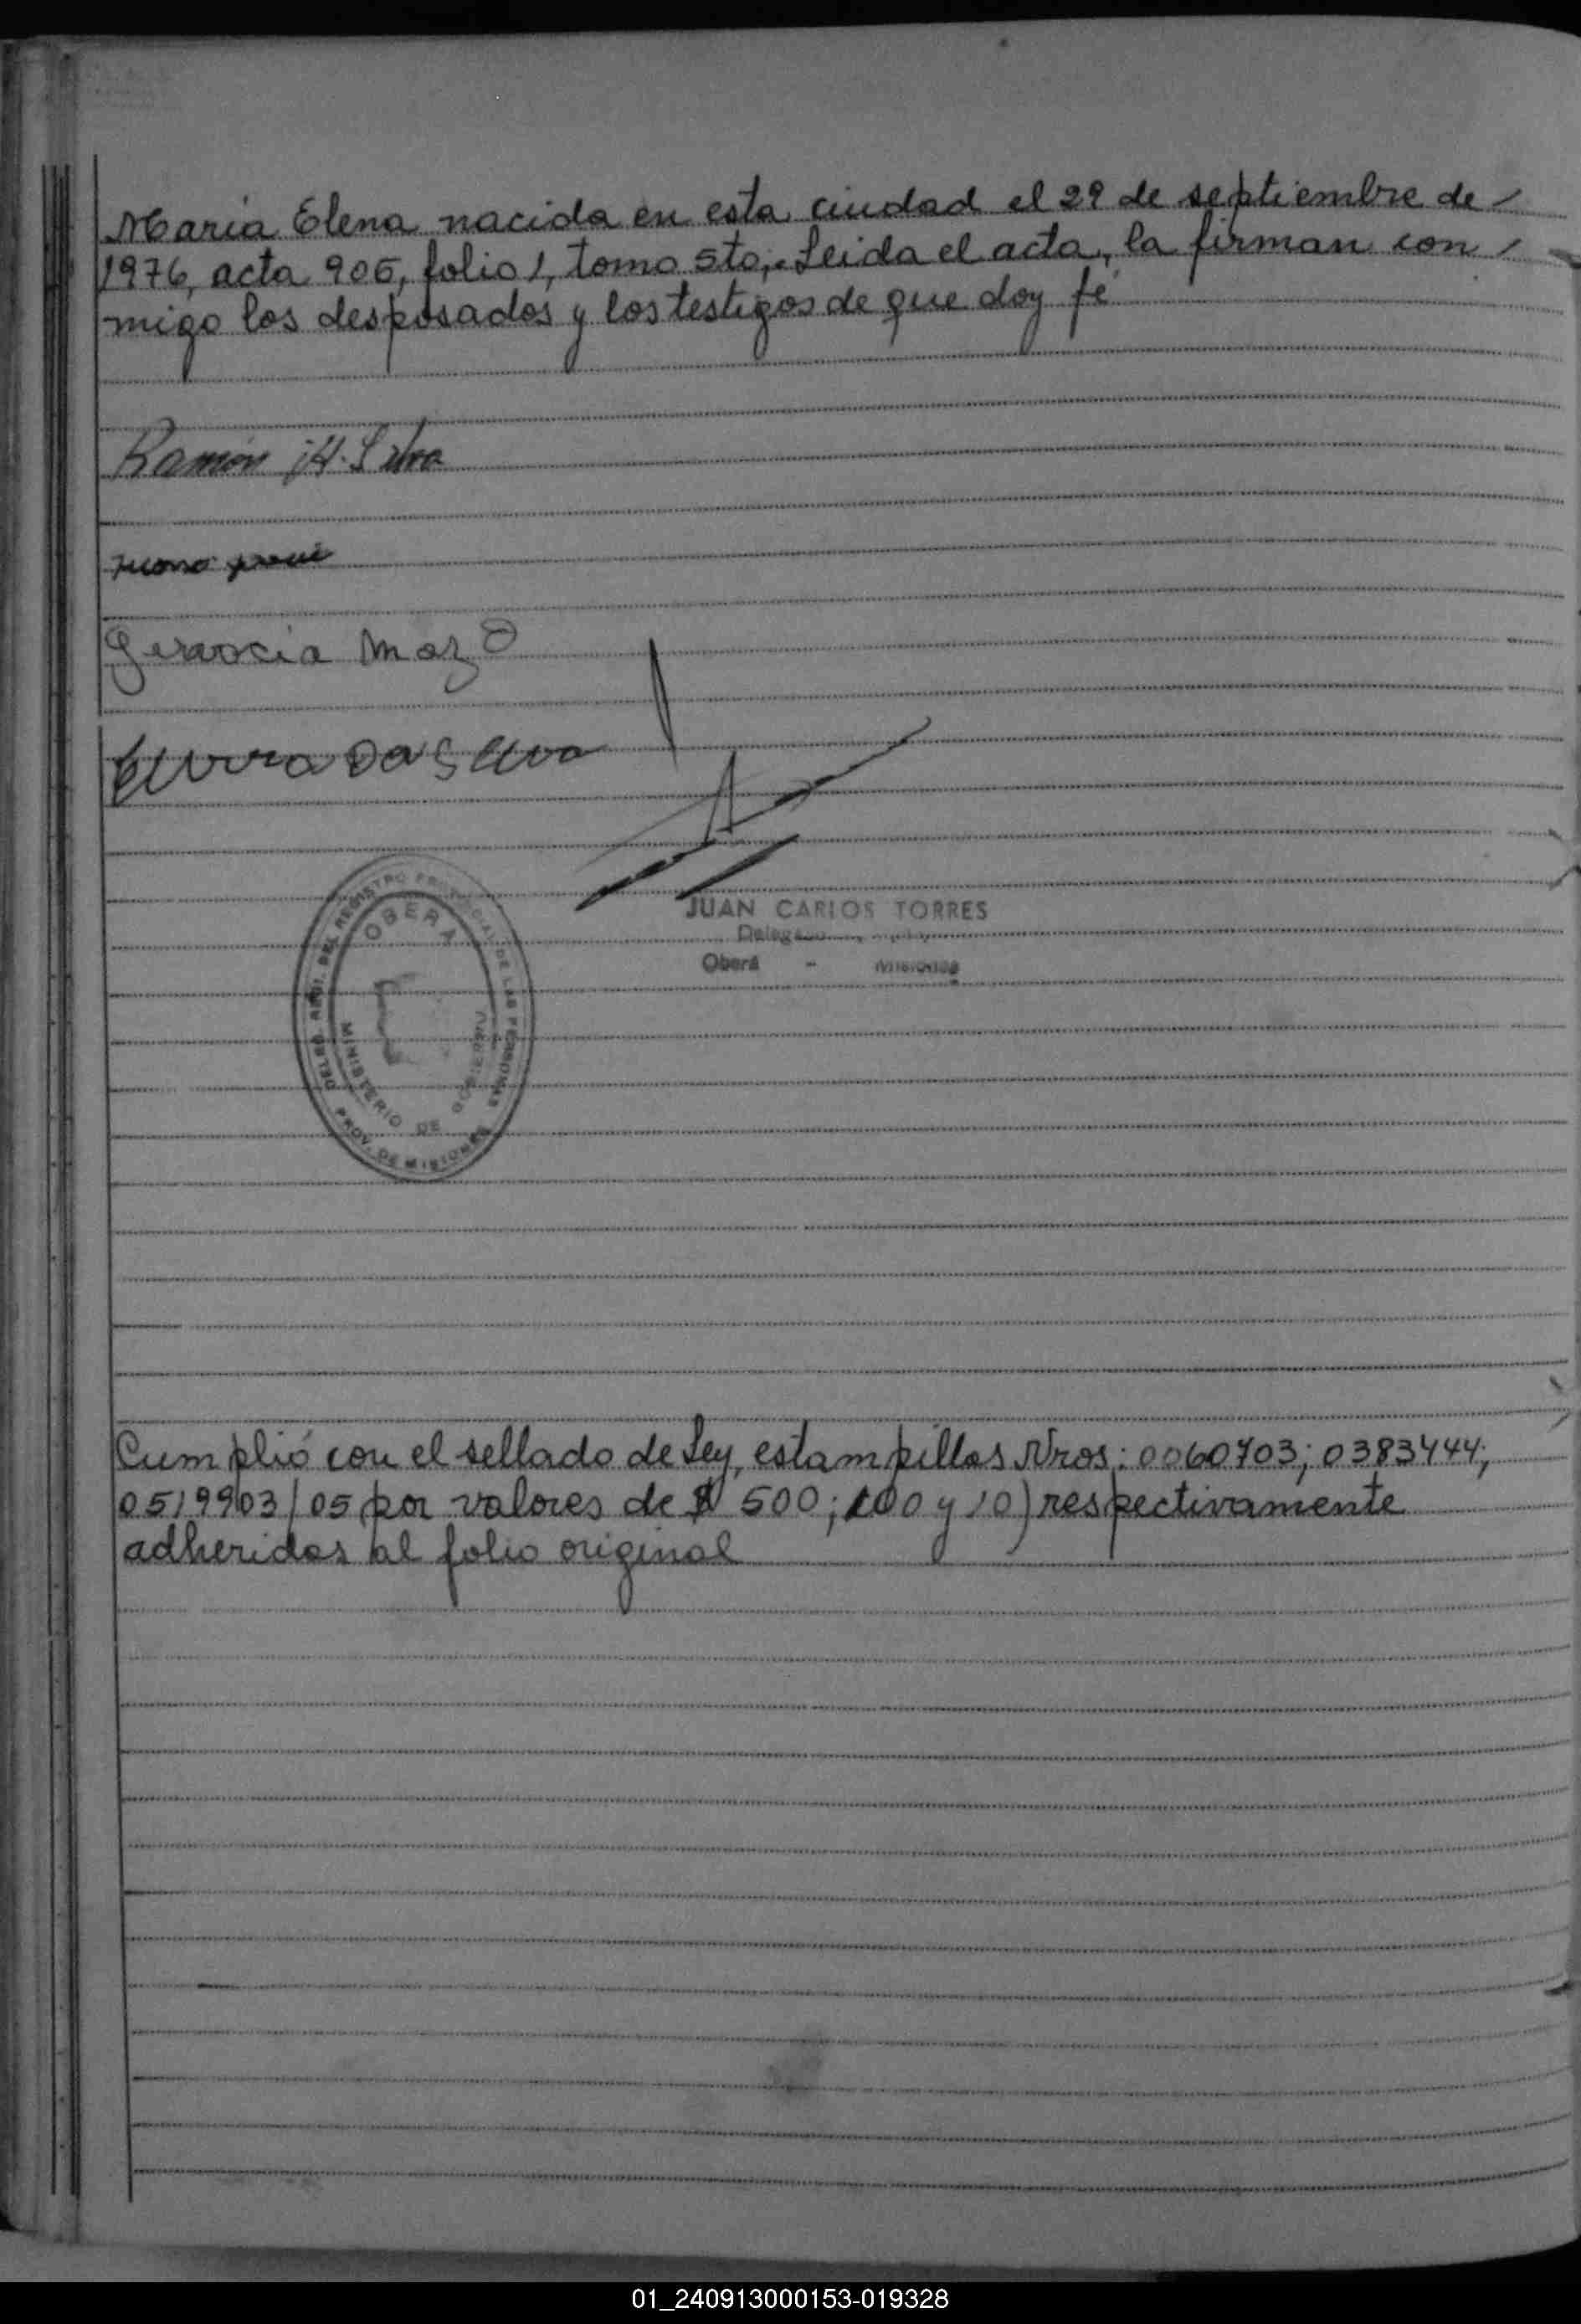 María Elena nacida en esta ciudad el 29 de septiembre de /
1976, acta 905, folio 1, tomo 5to,. Leida el acta, la firman con /
migo los desposados y los testigos de que doy fé
Ramón H. Silva
Da Silva
JUAN CARLOS TORRES
Oberá - Misiones
OBERA
MINISTERIO DE GOBIERNO
PROV. DE MISIONES
Cumplió con el sellado de Ley, estampillas Nros: 0060703; 0383444;
0519903/05 por valores de $ 500; 100 y 10) respectivamente
adheridas al folio original
01_240913000153-019328